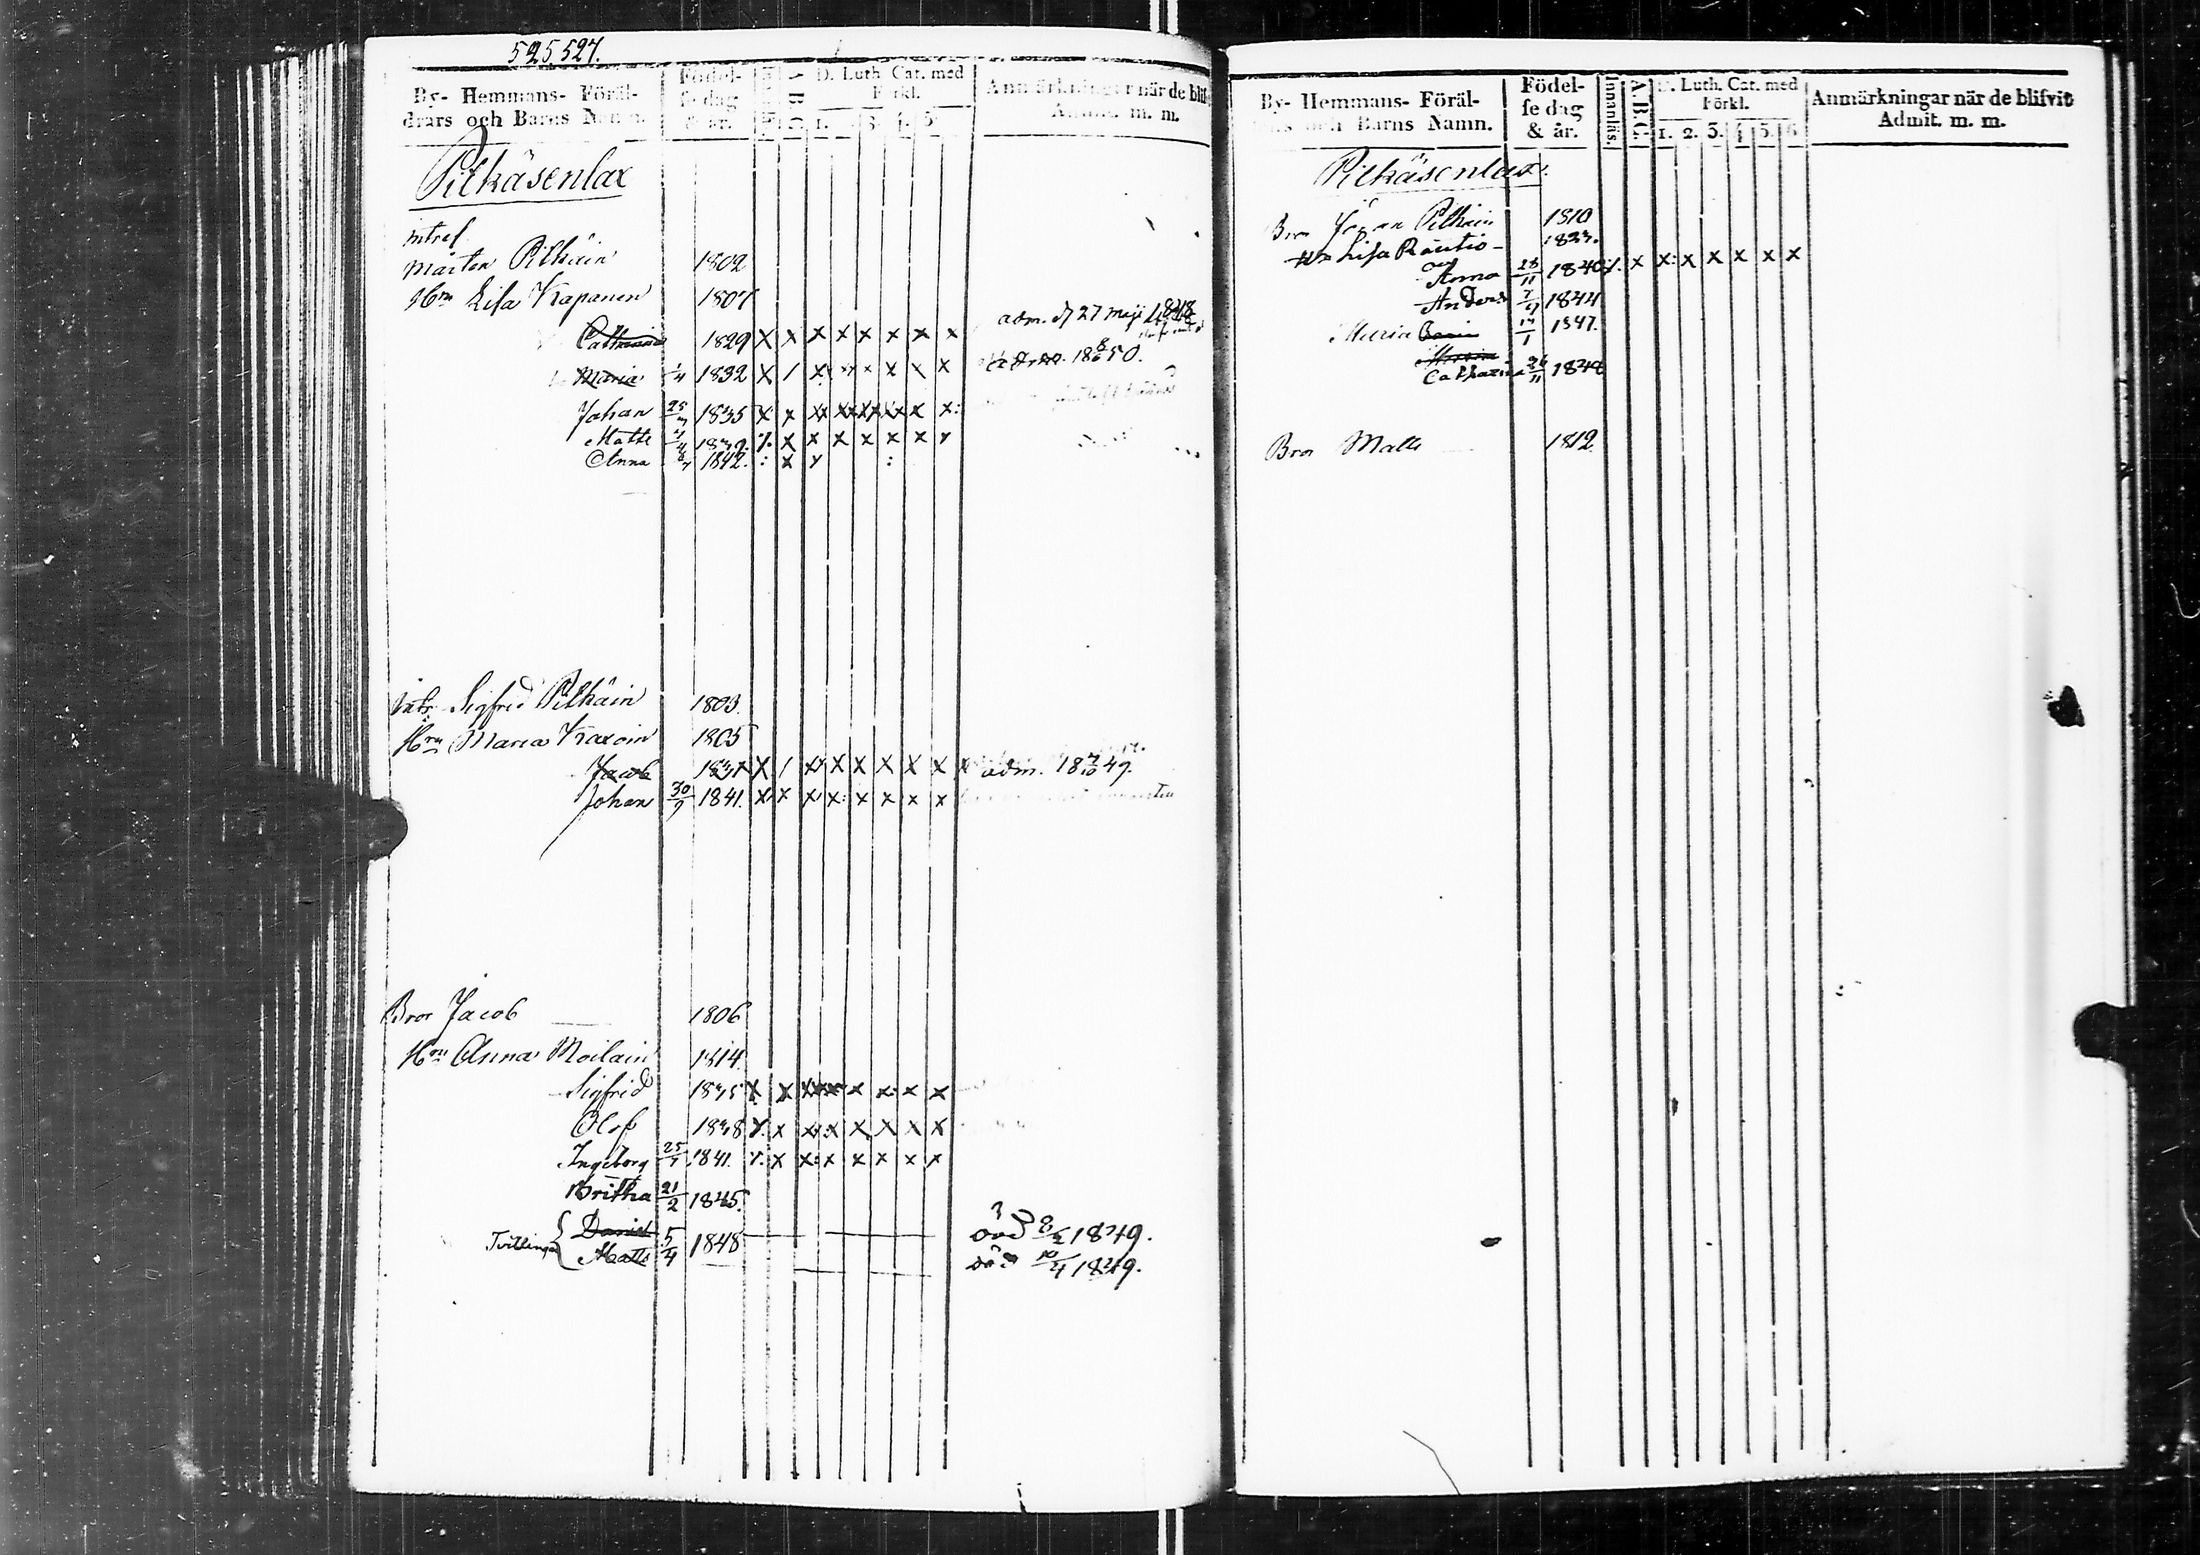 525 527.
By- Hemmans- Föräl- Födel- D. Luth. Cat. med Anmärkningar när de blif
drars och Barns Namn. se dag Förkl.
& år. 1. 3. 4. 5 Admit. m. m.
Pitkäsenlax
Intres.
Mårten Pitkäin 1802
Hru Lisa Kapanen 1807
Cathrina 1829 X X X X X X X X adm. d 27 Maji 1848
Maria 1832 X / X X X X X 18 50.
Johan 25 1835 X X X X X X X X
Matts 1839 X X X X X X X
Anna 1842. : X
Intr. Sigfred Pitkäin 1803.
Hru Maria 1805
Jacob 1831 X / X X X X X X adm. 18 49.
Johan 30/9 1841. X X X X X X X X
Bror Jacob 1806
Hru Anna Moilain 1814
Sigfrid 1835 X X X X X X X X
Olof 1838 X X X X X X X X
Ingeborg 25 1841. X X X X X X X
Britha 21/2 1845.
Tvillingar { Daniel 5/4 1848 död 8/2 1849.
Matts död 10/4 1849.
By- Hemmans- Föräl- Födel- Innanläs. A.B.C. D. Luth. Cat. med Anmärkningar när de blifvit
och Barns Namn. se dag Förkl. Admit. m. m.
& år. 1. 2. 3. 4 5. 6
Pitkäsenlax.
Bror Göran Pitkäin 1810
Hru Lisa Rautio 1823.
Anna 28/11 1840 X X X X X X X
Anders 1844
Maria 17/1 1847.
Catharina 26/11 1848
Bror Matts 1812